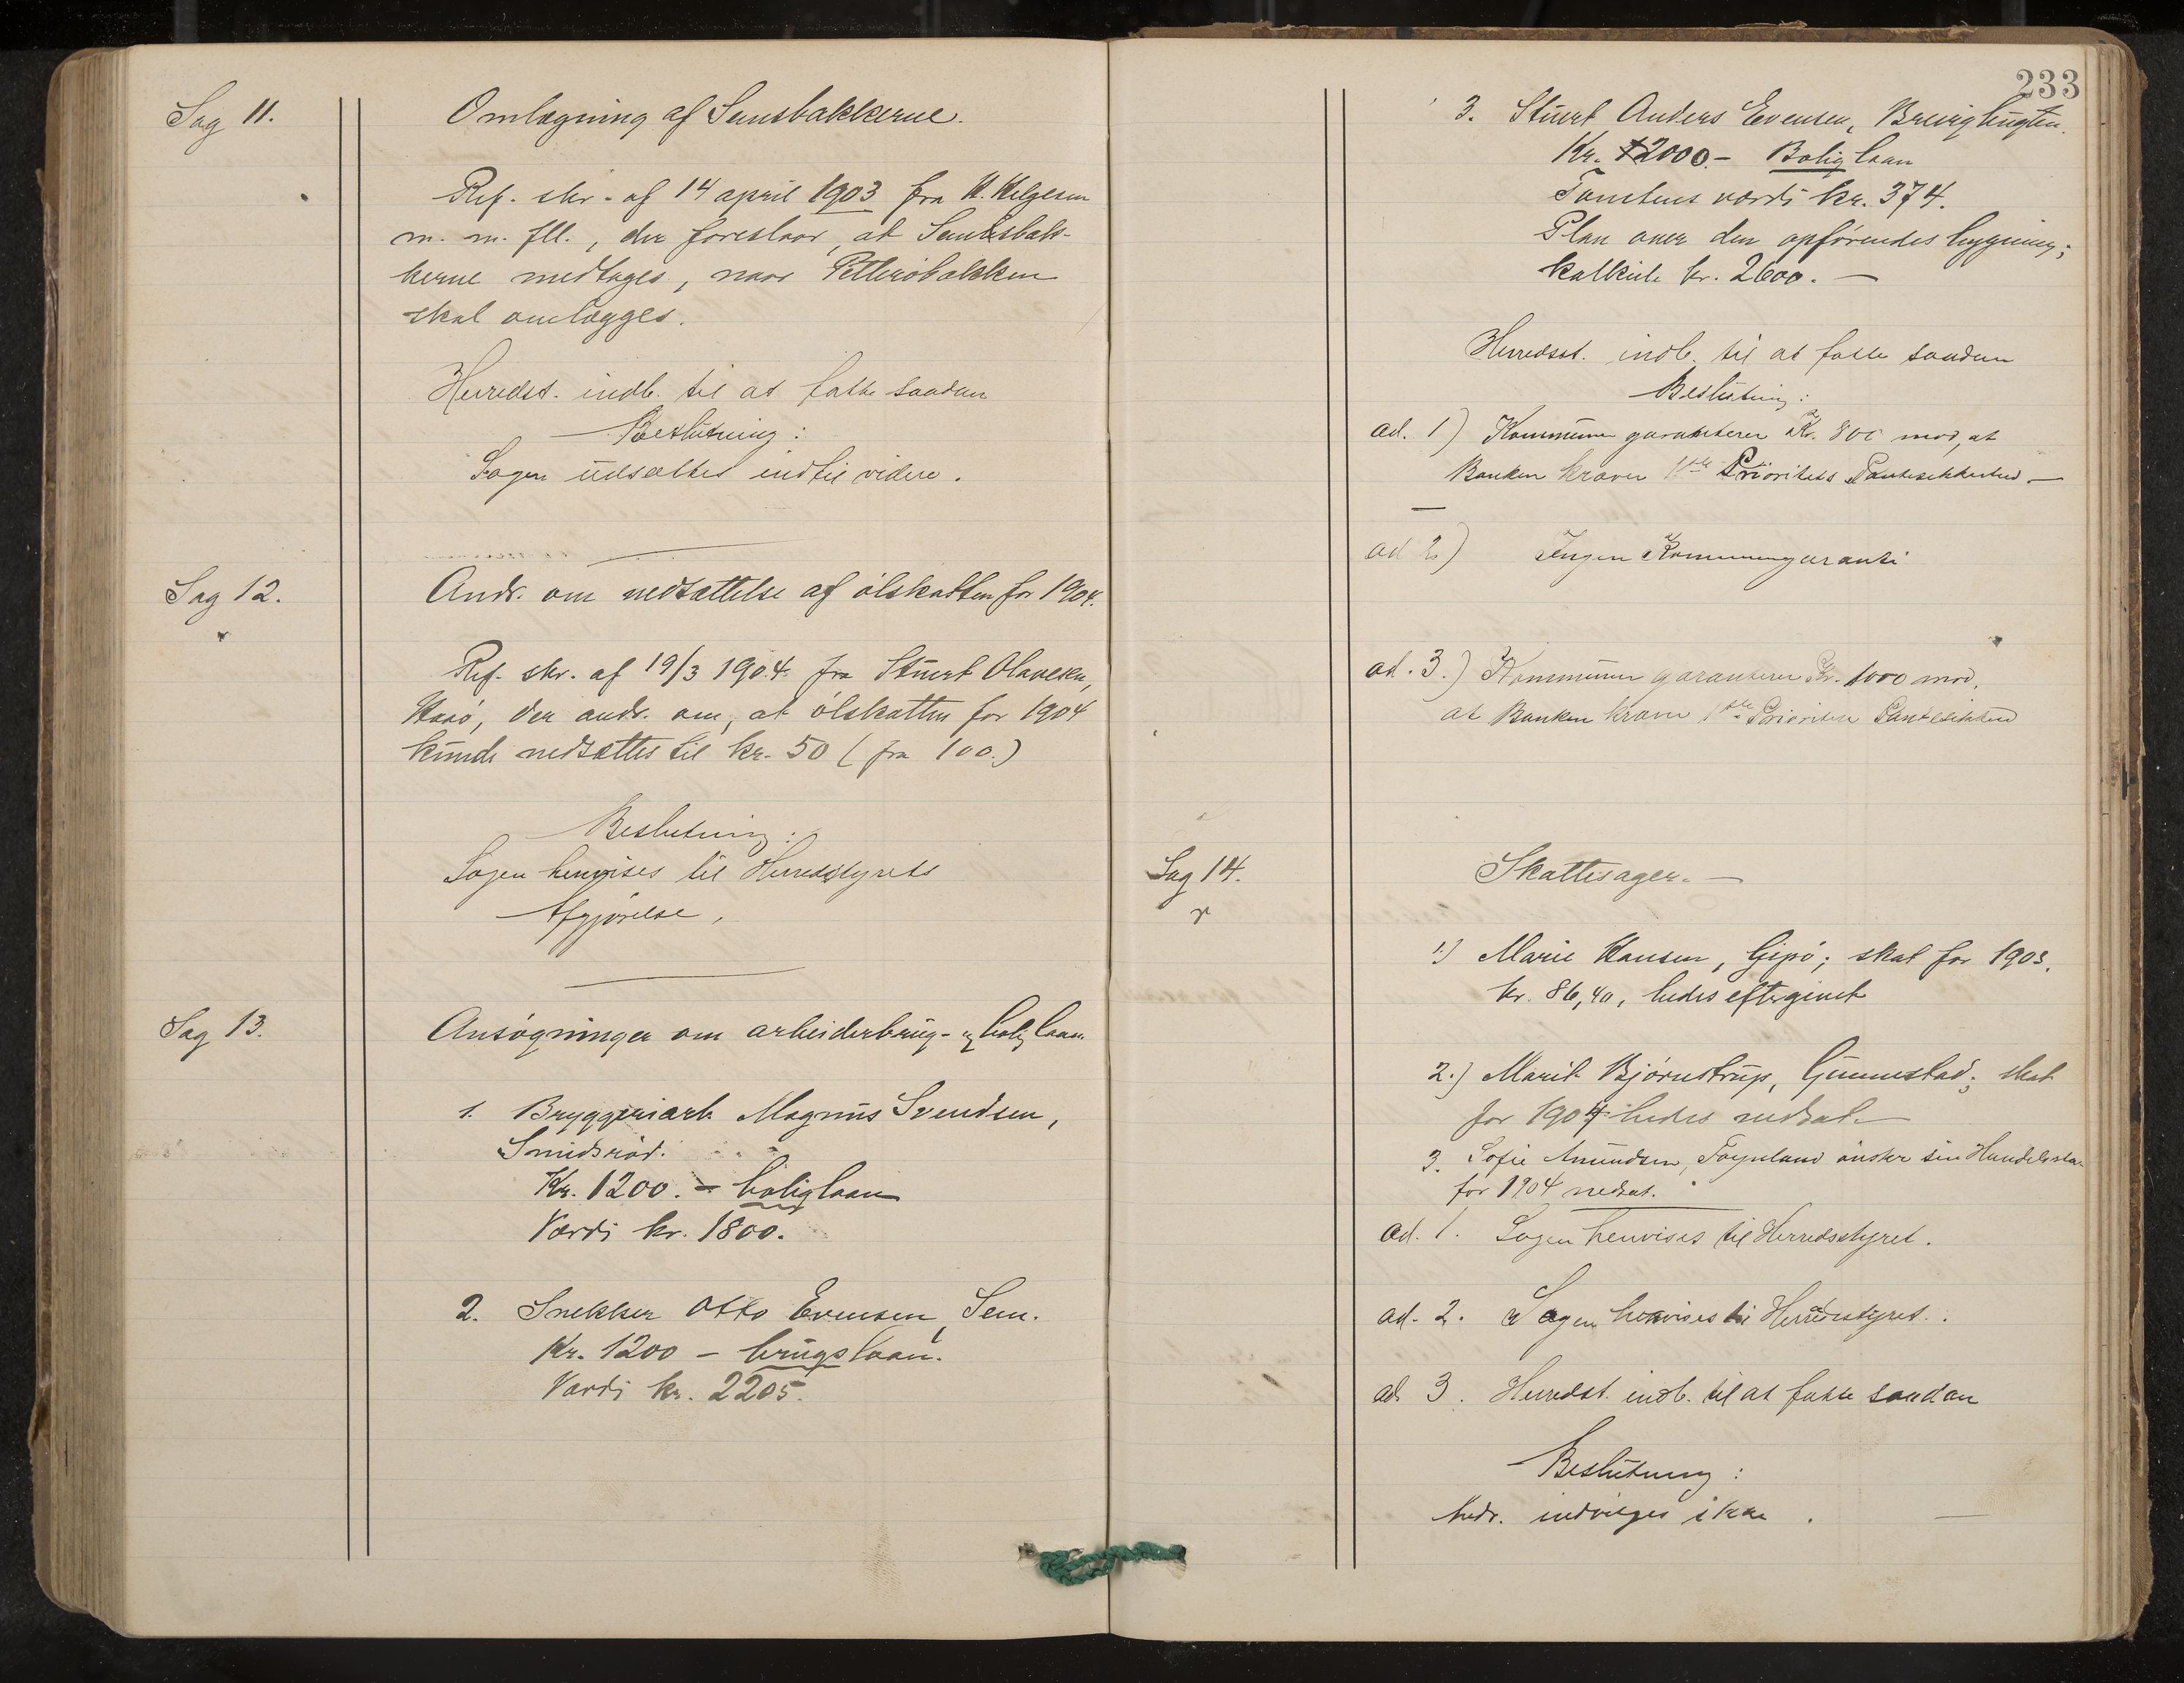 Sag 11.
Omlægning af Semsbakkerne.
Ref. skr. af 14 april 1903 fra H. Helgesen
m. m. fl., der foreslaar, at Semsbak-
kerne medtages, naar Pellerøbakken
skal omlægges.
Herredst. indb. til at fatte saadan
Beslutning:
Sagen udsættes indtil videre.
Sag 12.
Andr. om nedsættelse af ølskatten for 1904.
Ref. skr. af 19/3 1904 fra Stuert Olavesen,
der andr. om, at ølskatten for 1904
kunde nedsættes til kr. 50 (fra 100.)
Beslutning:
Sagen henvises til Herredsstyrets
Afgjørelse,
Sag 13.
Ansøgninger om arbeiderbrug- og boliglaan.
1. Bryggeriarb. Magnus Svendsen,
Smidsrød.
Kr. 1200. – boliglaan
Værdi kr. 1800.
2. Snekker Otto Evensen, Sem.
Kr. 1200 – brugslaan.
Værdi kr. 2205.
233
3. Stuert Anders Evensen,
Kr. 2000.– Boliglaan
Tomtens værdi kr. 374.
Plan over den opførendes bygning;
kalkule kr. 2600. —
Herredsst. indb. til at fatte saadan
Beslutning:
ad. 1) Kommunen garanterer Kr. 800 mod, at
Banken kræver 1ste Prioritets Pantesikkerhed —
ad 2) Ingen Kommunegaranti
ad. 3.) Kommunen garanterer Kr. 1000 mod,
at Banken kræver 1ste Prioritets Pantesikkerhed
Sag 14.
Skattesager. —
1.) Marie Hansen, Gipø; skat for 1903,
kr. 86,40, bedes eftergivet
2.) Marit Bjørnstrup, Gunnestad; skat
for 1904 bedes nedsat. —
3. Sofie Amundsen, Føynland ønsker sin
for 1904 nedsat.
ad. 1. Sagen henvises til Herredsstyret.
ad. 2. Sagen henvises til Herredsstyret.
ad. 3. Herredst. indb. til at fatte saadan
Beslutning:
Andr. indvilges ikke. —